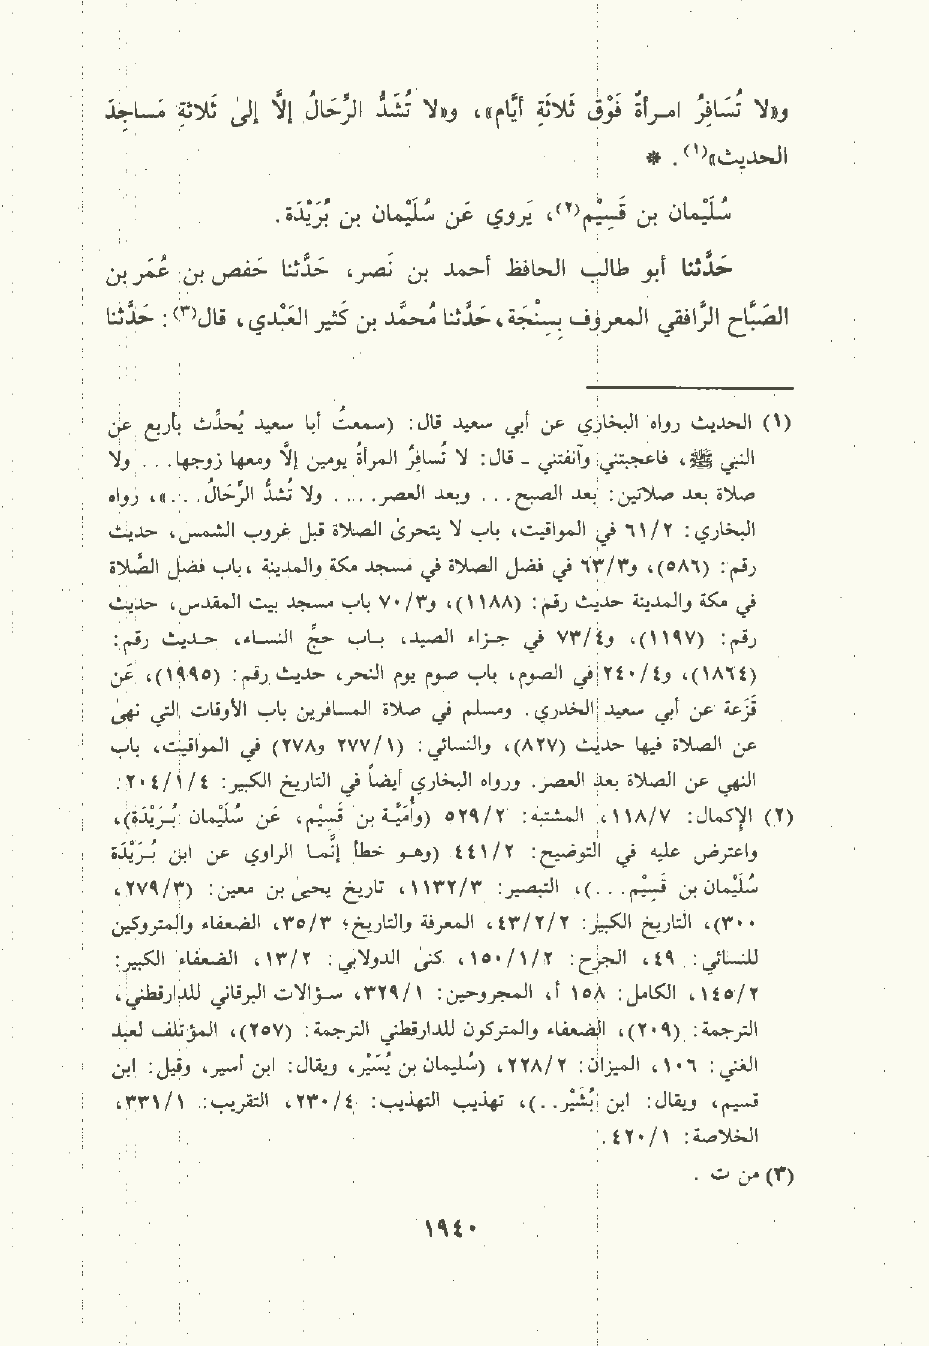 و«لا تُسَافِرُ امرأةٌ فَوْقَ ثَلاثَةِ أيَّام»، و«لا تُشَدُّ الرِّحَالُ إلَّا إلىٰ ثَلاثةِ مَساجِدَ
الحديث»(١). *
سُلَيْمان بن قَسِيْم(٢)، يَروي عَن سُلَيْمان بن بُرَيْدَة.
حَدَّثنا أبو طالب الحافظ أحمد بن نَصر، حَدَّثنا حَفص بن عُمَر بن
الصَبَّاح الرَّافقي المعروف بِسِنْجَة، حَدَّثنا مُحمَّد بن كَثير العَبْدي، قال(٣): حَدَّثنا
(١) الحديث رواه البخاري عن أبي سعيد قال: (سمعتُ أبا سعيد يُحدِّث بأربع عن
النبي ﷺ، فأعجبتني وآنفتني - قال: لا تُسافرُ المرأةُ يومين إلَّا ومعها زوجها. . . ولا
صلاة بعد صلاتين: بعد الصبح. . . وبعد العصر. . . . . ولا تُشدُّ الرِّحَالُ. . . .»، رواه
البخاري: ٦١/٢ في المواقيت، باب لا يتحرىٰ الصلاة قبل غروب الشمس، حديث
رقم: (٥٨٦)، و٦٣/٣ في فضل الصلاة في مسجد مكة والمدينة ،باب فضل الصَّلاة
في مكة والمدينة حديث رقم: (١١٨٨)، و٧٠/٣ باب مسجد بيت المقدس، حديث
رقم: (١١٩٧)، و٧٣/٤ في جزاء الصيد، باب حجِّ النساء، حديث رقم:
(١٨٦٤)، و٢٤٠/٤ في الصوم، باب صوم يوم النحر، حديث رقم: (١٩٩٥)، عَن
قَزَعة عن أبي سعيد الخدري. ومسلم في صلاة المسافرين باب الأوقات التي نهىٰ
عن الصلاة فيها حديث (٨٢٧)، والنسائي: (٢٧٧/١ و٢٧٨) في المواقيت، باب
النهي عن الصلاة بعد العصر. ورواه البخاري أيضاً في التاريخ الكبير: ٢٠٤/١/٤:
(٢) الإكمال: ١١٨/٧، المشتبه: ٥٢٩/٢ (وأُمَيَّة بن قَسِيْم، عَن سُلَيْمان بُرَيْدَة)،
واعترض عليه في التوضيح: ٤٤١/٢ (وهو خطأ إنَّما الراوي عن ابن بُرَيْدَة
سُلَيْمان بن قَسِيْم. . .)، التبصير: ١١٣٢/٣، تاريخ يحيىٰ بن معين: (٢٧٩/٣،
٣٠٠)، التاريخ الكبير: ٤٣/٢/٢، المعرفة والتاريخ؛ ٣٥/٣، الضعفاء والمتروكين
للنسائي: ٤٩، الجرح: ١٥٠/١/٢، كنىٰ الدولابي: ١٣/٢، الضعفاء الكبير:
١٤٥/٢، الكامل: ١٥٨ أ، المجروحين: ٣٢٩/١، سؤالات البرقاني للدارقطني،
الترجمة: (٢٠٩)، الضعفاء والمتركون للدارقطني الترجمة: (٢٥٧)، المؤتلف لعبد
الغني: ١٠٦، الميزان: ٢٢٨/٢، (سُليمان بن يُسَيْر، ويقال: ابن أسير، وقيل: ابن
قسيم، ويقال: ابن بُشَيْر. . .)، تهذيب التهذيب: ٢٣٠/٤، التقريب: ٣٣١/١،
الخلاصة: ٤٢٠/١.
(٣) من ت.
١٩٤٠